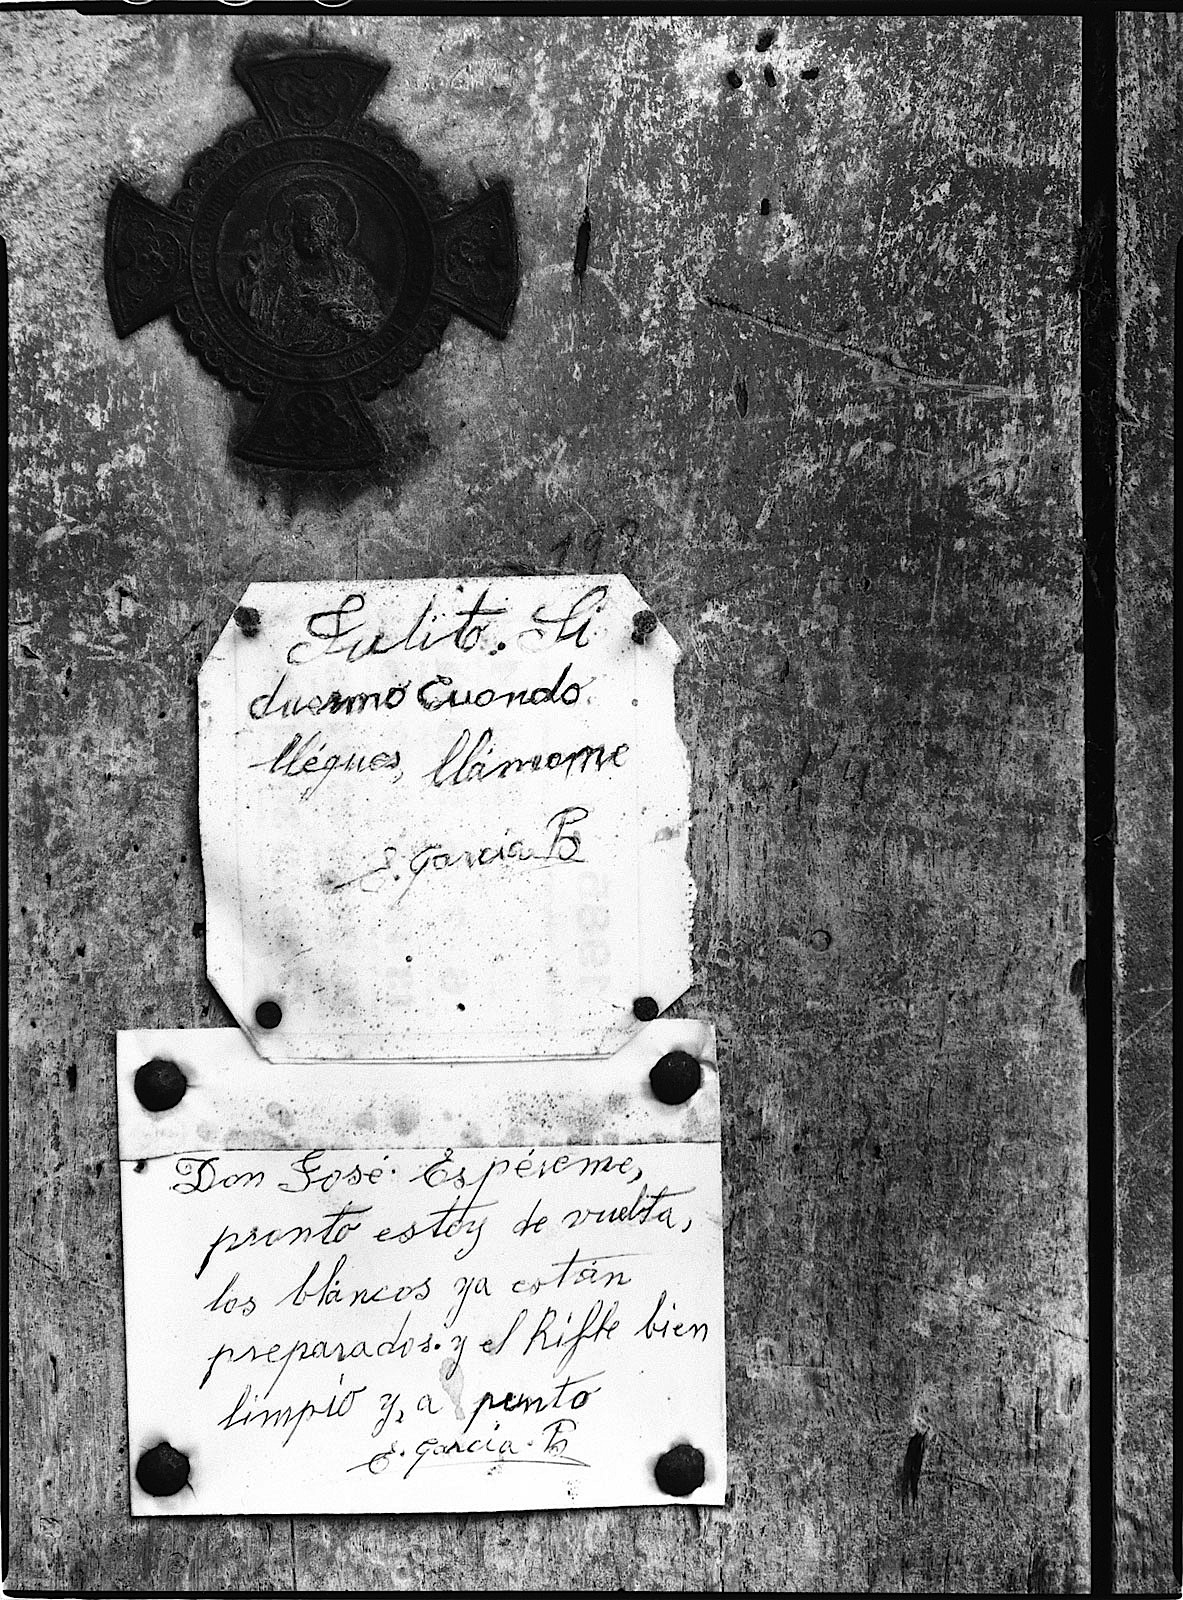 198
Julito. Si
duermo cuando
llégues, llámeme
E. García B
1985
Don José. Espéreme,
pronto estoy de vuelta,
los bláncos ya están
preparados. y el Rifle bien
limpio y, a punto
E. García. B